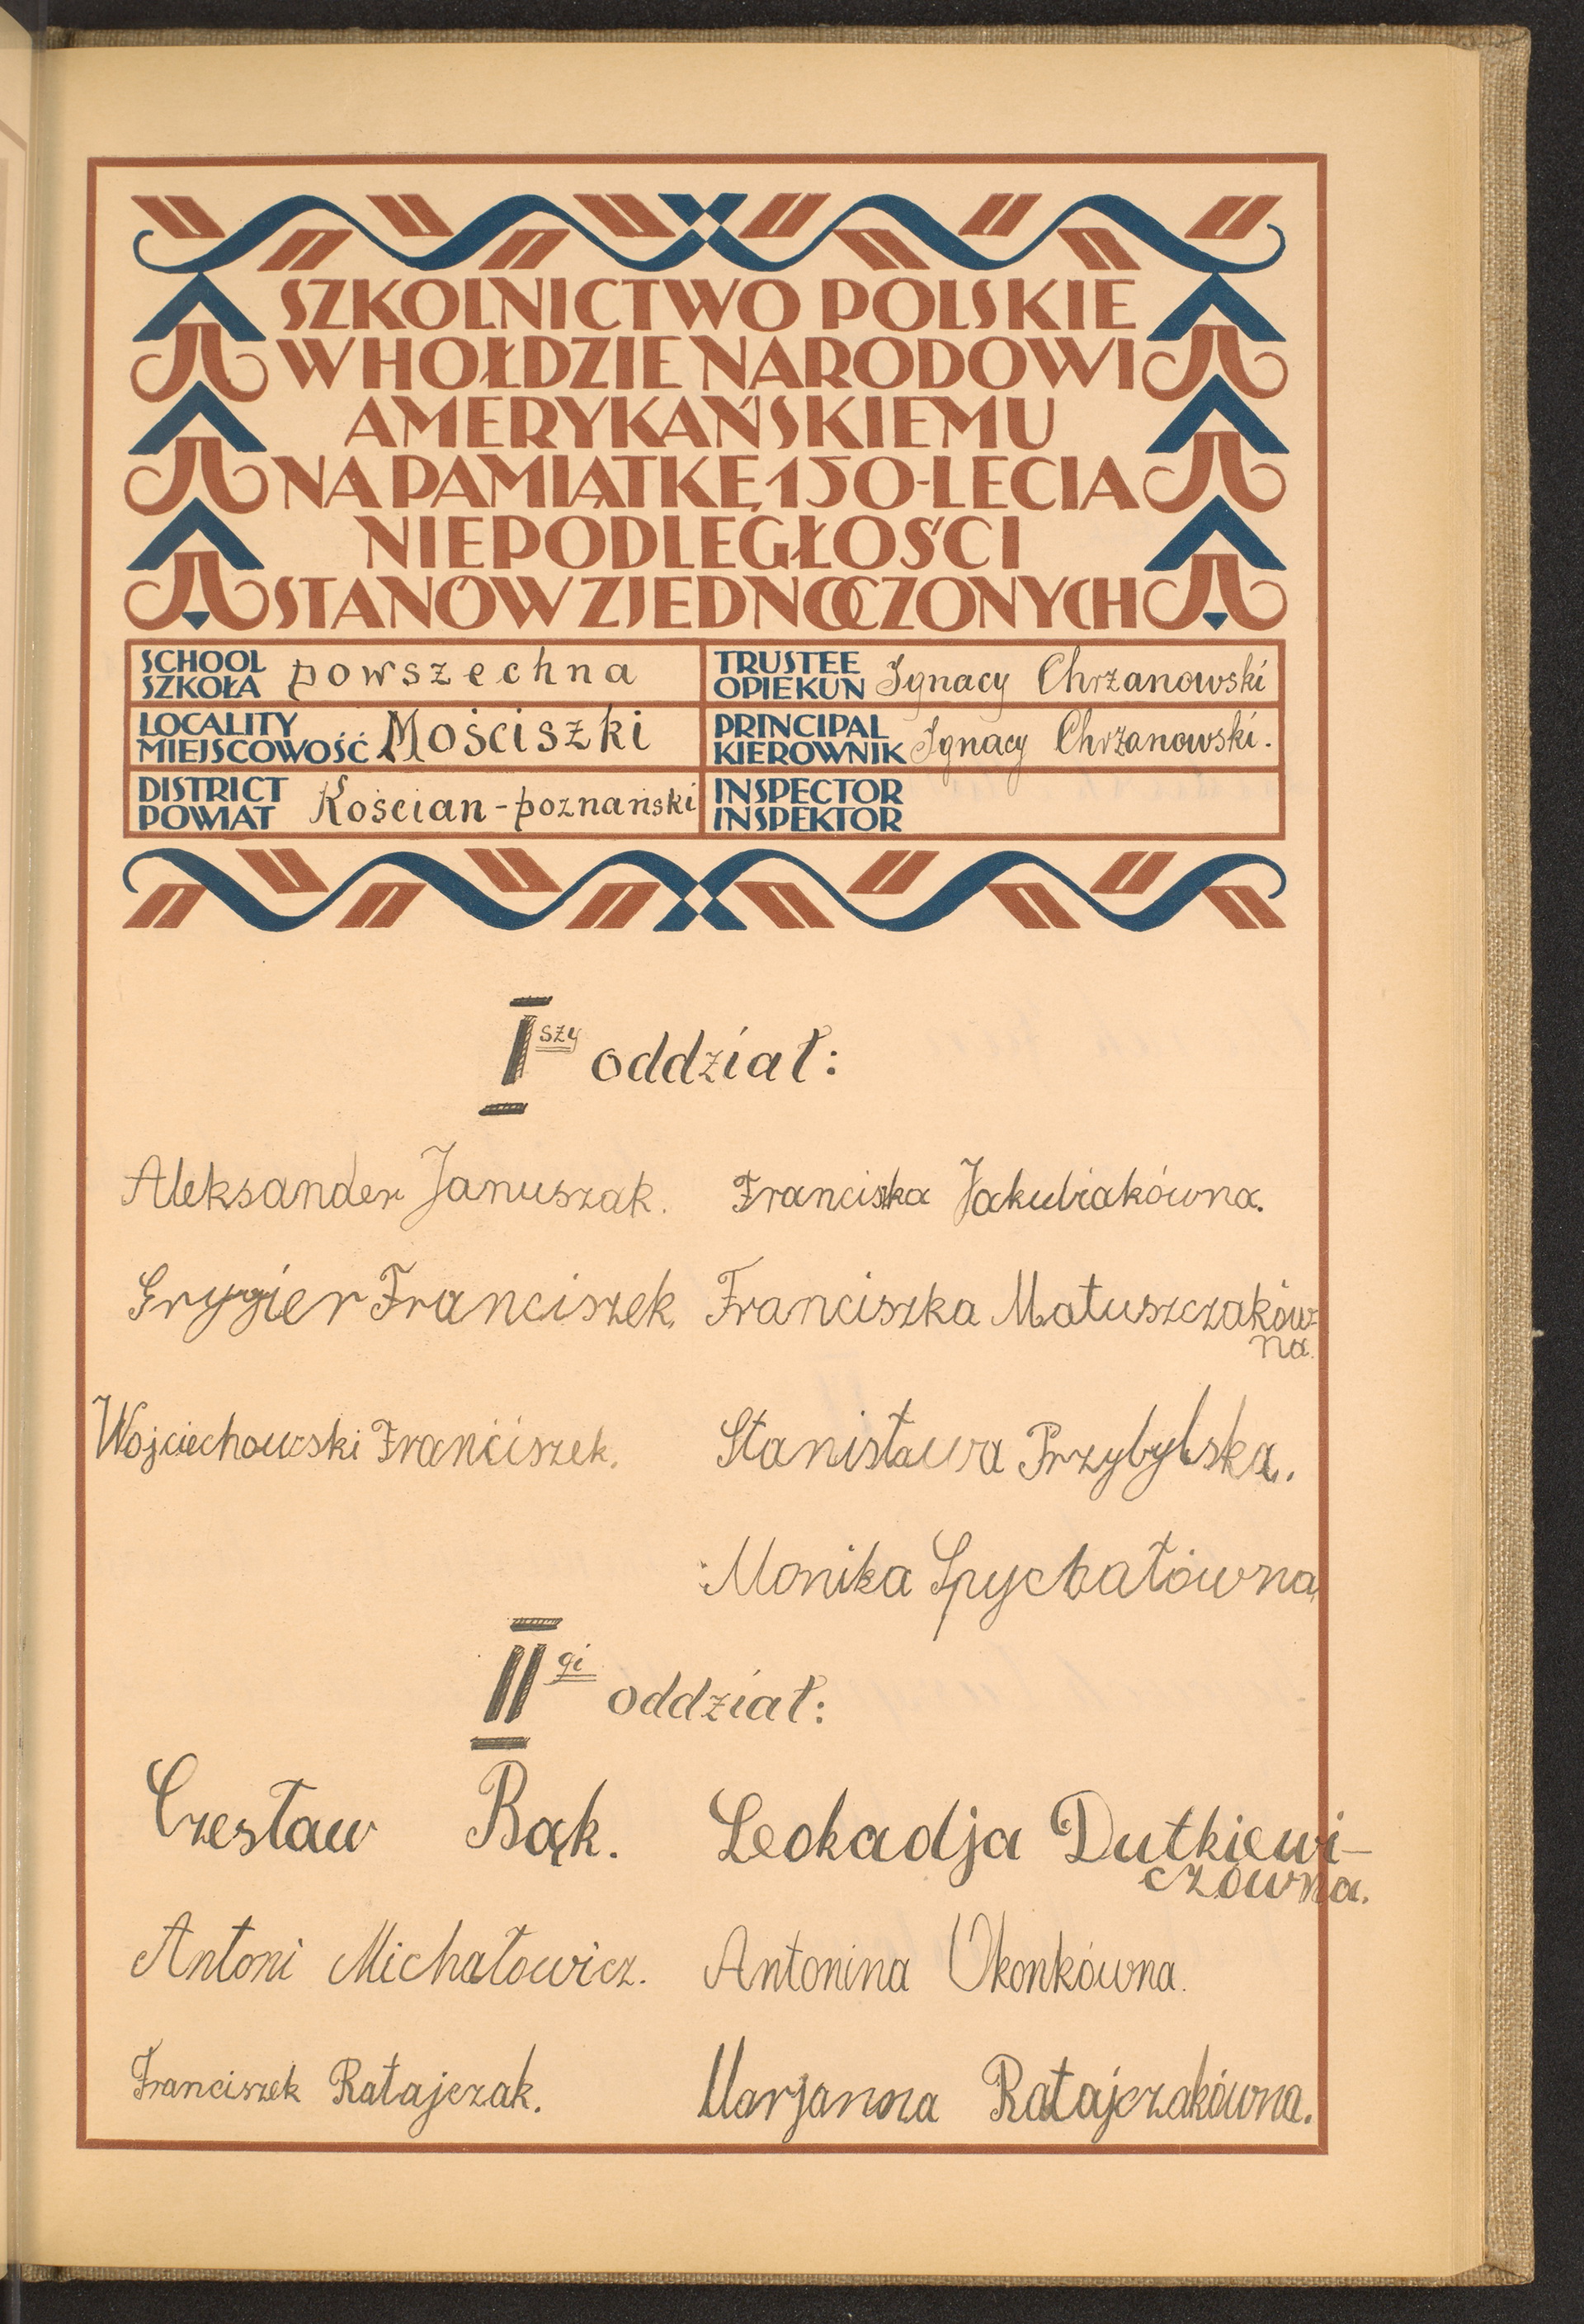 SZKOLNICTWO POLSKIE
W HOŁDZIE NARODOWI
AMERYKAŃSKIEMU
NA PAMIĄTKĘ 150-LECIA
NIEPODLEGŁOŚCI
STANÓW ZJEDNOCZONYCH
SCHOOL
SZKOŁA powszechna
TRUSTEE
OPIEKUN Ignacy Chrzanowski
LOCALITY
MIEJSCOWOŚĆ Mościszki
PRINCIPAL
KIEROWNIK Ignacy Chrzanowski.
DISTRICT
POWIAT Kościan-poznański
INSPECTOR
INSPEKTOR
I szy oddział:
Aleksander Januszak. Franciszka Jakubiakówna.
Grygier Franciszek. Franciszka Matuszczaków-
na.
Wojciechowski Franciszek. Stanisława Przybylska.
Monika Spychałówna
II gi oddział:
Czesław Bąk. Leokadja Dutkiewi-
czówna.
Antoni Michałowicz. Antonina Okonkówna.
Franciszek Ratajczak. Marjanna Ratajczakówna.